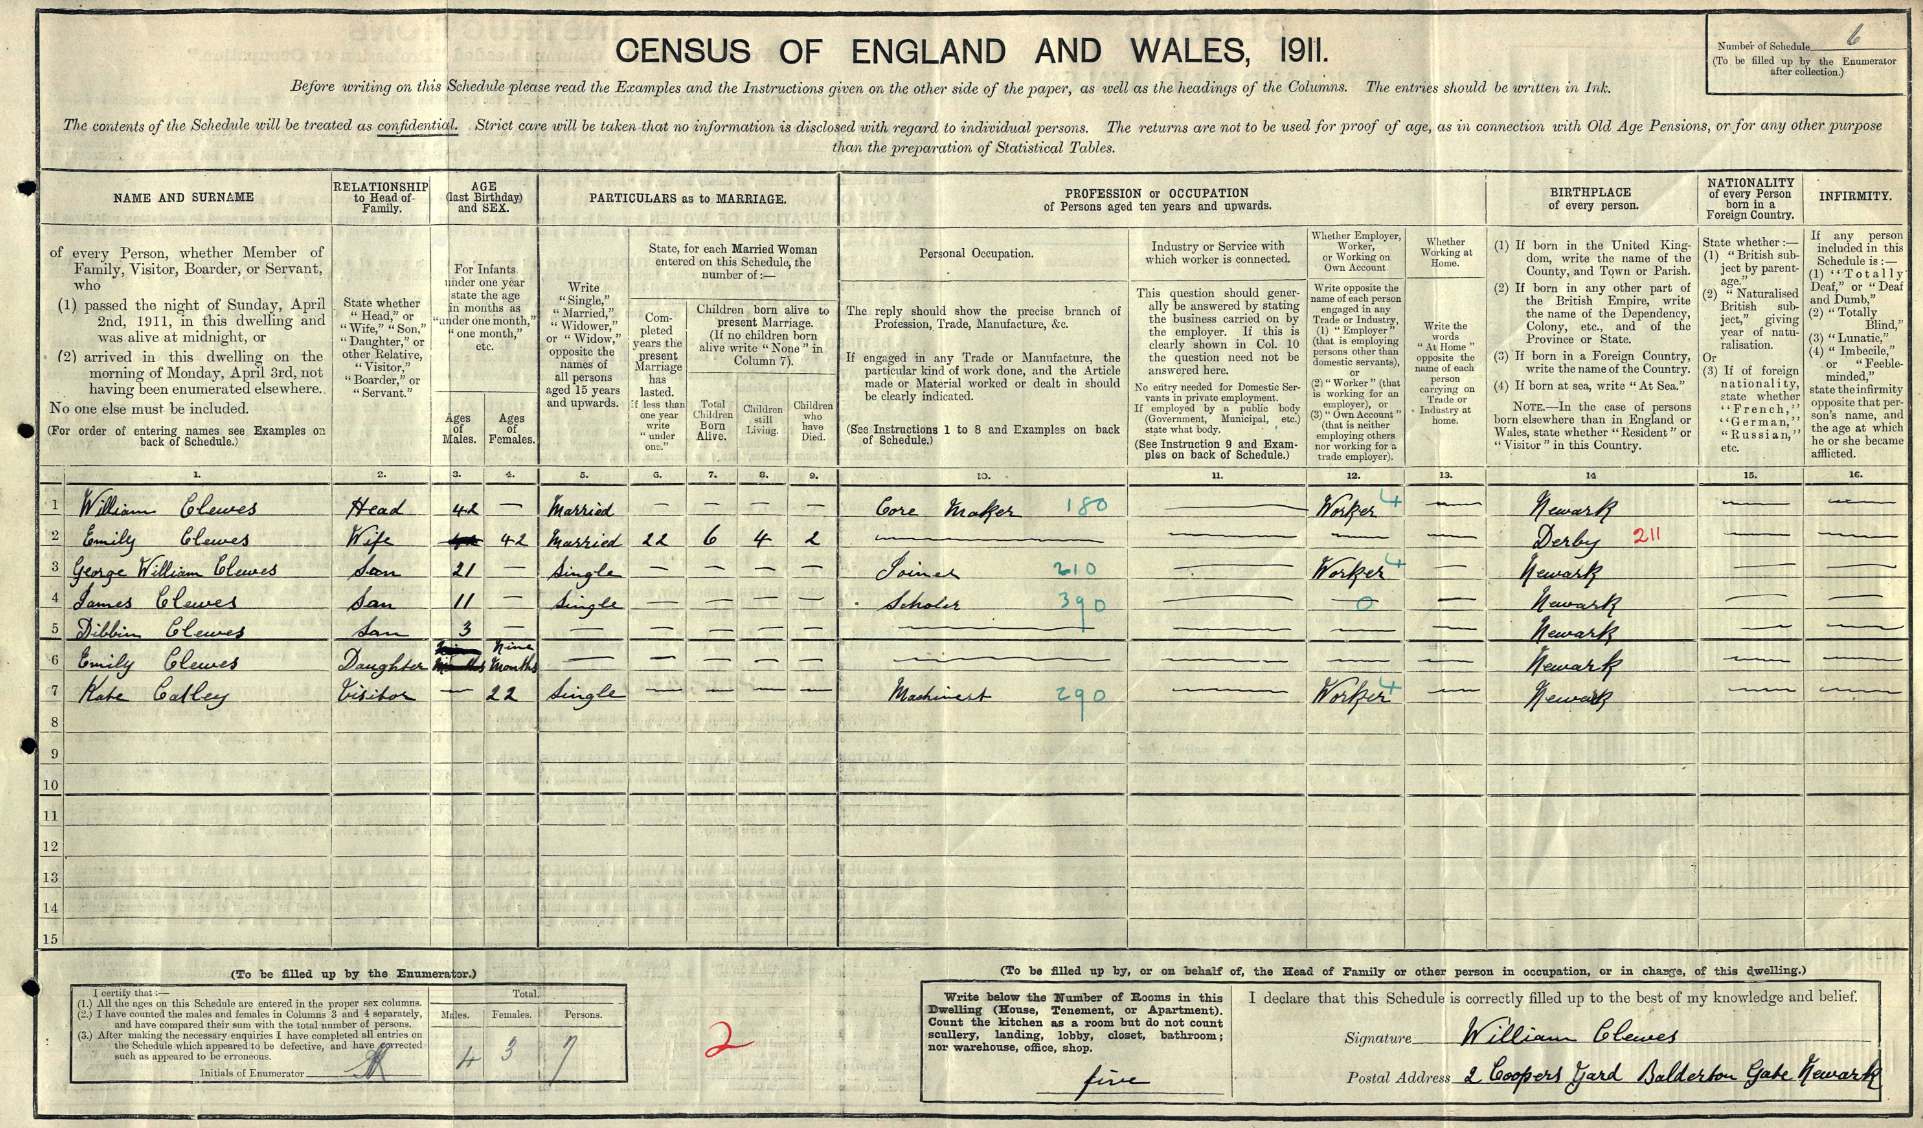 CENSUS OF ENGLAND AND WALES, 1911.
Number of Schedule 6
(To be filled up by the Enumerator
after collection.)
Before writing on this Schedule please read the Examples and the Instructions given on the other side of the paper, as well as the headings of the Columns. The entries should be written in Ink.
The contents of the Schedule will be treated as confidential. Strict care will be taken that no information is disclosed with regard to individual persons. The returns are not to be used for proof of age, as in connection with Old Age Pensions, or for any other purpose
than the preparation of Statistical Tables.
NAME AND SURNAME
of every Person, whether Member of
Family, Visitor, Boarder, or Servant,
who
(1) passed the night of Sunday, April
2nd, 1911, in this dwelling and
was alive at midnight, or
(2) arrived in this dwelling on the
morning of Monday, April 3rd, not
having been enumerated elsewhere.
No one else must be included.
(For order of entering names see Examples on
back of Schedule.)
RELATIONSHIP
to Head of
Family.
State whether
"Head," or
"Wife," "Son,"
"Daughter," or
other Relative,
"Visitor,"
"Boarder," or
"Servant."
AGE
(last Birthday)
and SEX.
For Infants
under one year
state the age
in months as
"under one month,"
"one month,"
etc.
Ages
of
Males.
Ages
of
Females.
PARTICULARS as to MARRIAGE.
Write
"Single,"
"Married,"
"Widower,"
or "Widow,"
opposite the
names of
all persons
aged 15 years
and upwards.
State, for each Married Woman
entered on this Schedule, the
number of:—
Com-
pleted
years the
present
Marriage
has
lasted.
If less than
one year
write
"under
one."
Children born alive to
present Marriage.
(If no children born
alive write "None" in
Column 7).
Total
Children
Born
Alive.
Children
still
Living.
Children
who
have
Died.
PROFESSION or OCCUPATION
of Persons aged ten years and upwards.
Personal Occupation.
The reply should show the precise branch of
Profession, Trade, Manufacture, &c.
If engaged in any Trade or Manufacture, the
particular kind of work done, and the Article
made or Material worked or dealt in should
be clearly indicated.
(See Instructions 1 to 8 and Examples on back
of Schedule.)
Industry or Service with
which worker is connected.
This question should gener-
ally be answered by stating
the business carried on by
the employer. If this is
clearly shown in Col. 10
the question need not be
answered here.
No entry needed for Domestic Ser-
vants in private employment.
If employed by a public body
(Government, Municipal, etc.)
state what body.
(See Instruction 9 and Exam-
ples on back of Schedule.)
Whether Employer,
Worker,
or Working on
Own Account
Write opposite the
name of each person
engaged in any
Trade or Industry,
(1) "Employer"
(that is employing
persons other than
domestic servants),
or
(2) "Worker" (that
is working for an
employer), or
(3) "Own Account"
(that is neither
employing others
nor working for a
trade employer).
Whether
Working at
Home.
Write the
words
"At Home"
opposite the
name of each
person
carrying on
Trade or
Industry at
home.
BIRTHPLACE
of every person.
(1) If born in the United King-
dom, write the name of the
County, and Town or Parish.
(2) If born in any other part of
the British Empire, write
the name of the Dependency,
Colony, etc., and of the
Province or State.
(3) If born in a Foreign Country,
write the name of the Country.
(4) If born at sea, write "At Sea."
NOTE.—In the case of persons
born elsewhere than in England or
Wales, state whether "Resident" or
"Visitor" in this Country.
NATIONALITY
of every Person
born in a
Foreign Country.
State whether:—
(1) "British sub-
ject by parent-
age."
(2) "Naturalised
British sub-
ject," giving
year of natu-
ralisation.
Or
(3) If of foreign
nationality,
state whether
"French,"
"German,"
"Russian,"
etc.
INFIRMITY.
If any person
included in this
Schedule is:—
(1) "Totally
Deaf," or "Deaf
and Dumb,"
(2) "Totally
Blind,"
(3) "Lunatic,"
(4) "Imbecile,"
or "Feeble-
minded,"
state the infirmity
opposite that per-
son's name, and
the age at which
he or she became
afflicted.
1. 2. 3. 4. 5. 6. 7. 8. 9. 10. 11. 12. 13. 14 15. 16.
1 William Clewes Head 42 — Married — — — — Core Maker 180 — Worker 4 — Newark — —
2 Emily Clewes Wife 42 Married 22 6 4 2 — — — — Derby 211 — —
3 George William Clewes Son 21 — Single — — — — Joiner 210 — Worker 4 — Newark — —
4 James Clewes Son 11 — Single — — — — Scholar 390 — 0 — Newark — —
5 Dibbin Clewes Son 3 — — — — — — — — — — Newark — —
6 Emily Clewes Daughter Nine Months — — — — — — — — — Newark — —
7 Kate Catley Visitor — 22 Single — — — — Machinest 290 — Worker 4 — Newark — —
8
9
10
11
12
13
14
15
(To be filled up by the Enumerator.)
I certify that:—
(1.) All the ages on this Schedule are entered in the proper sex columns.
(2.) I have counted the males and females in Columns 3 and 4 separately,
and have compared their sum with the total number of persons.
(3.) After making the necessary enquiries I have completed all entries on
the Schedule which appeared to be defective, and have corrected
such as appeared to be erroneous.
Initials of Enumerator
Total.
Males. Females. Persons.
4 3 7
2
(To be filled up by, or on behalf of, the Head of Family or other person in occupation, or in charge, of this dwelling.)
Write below the Number of Rooms in this
Dwelling (House, Tenement, or Apartment).
Count the kitchen as a room but do not count
scullery, landing, lobby, closet, bathroom;
nor warehouse, office, shop.
five
I declare that this Schedule is correctly filled up to the best of my knowledge and belief.
Signature William Clewes
Postal Address 2 Coopers Yard Balderton Gate Newark